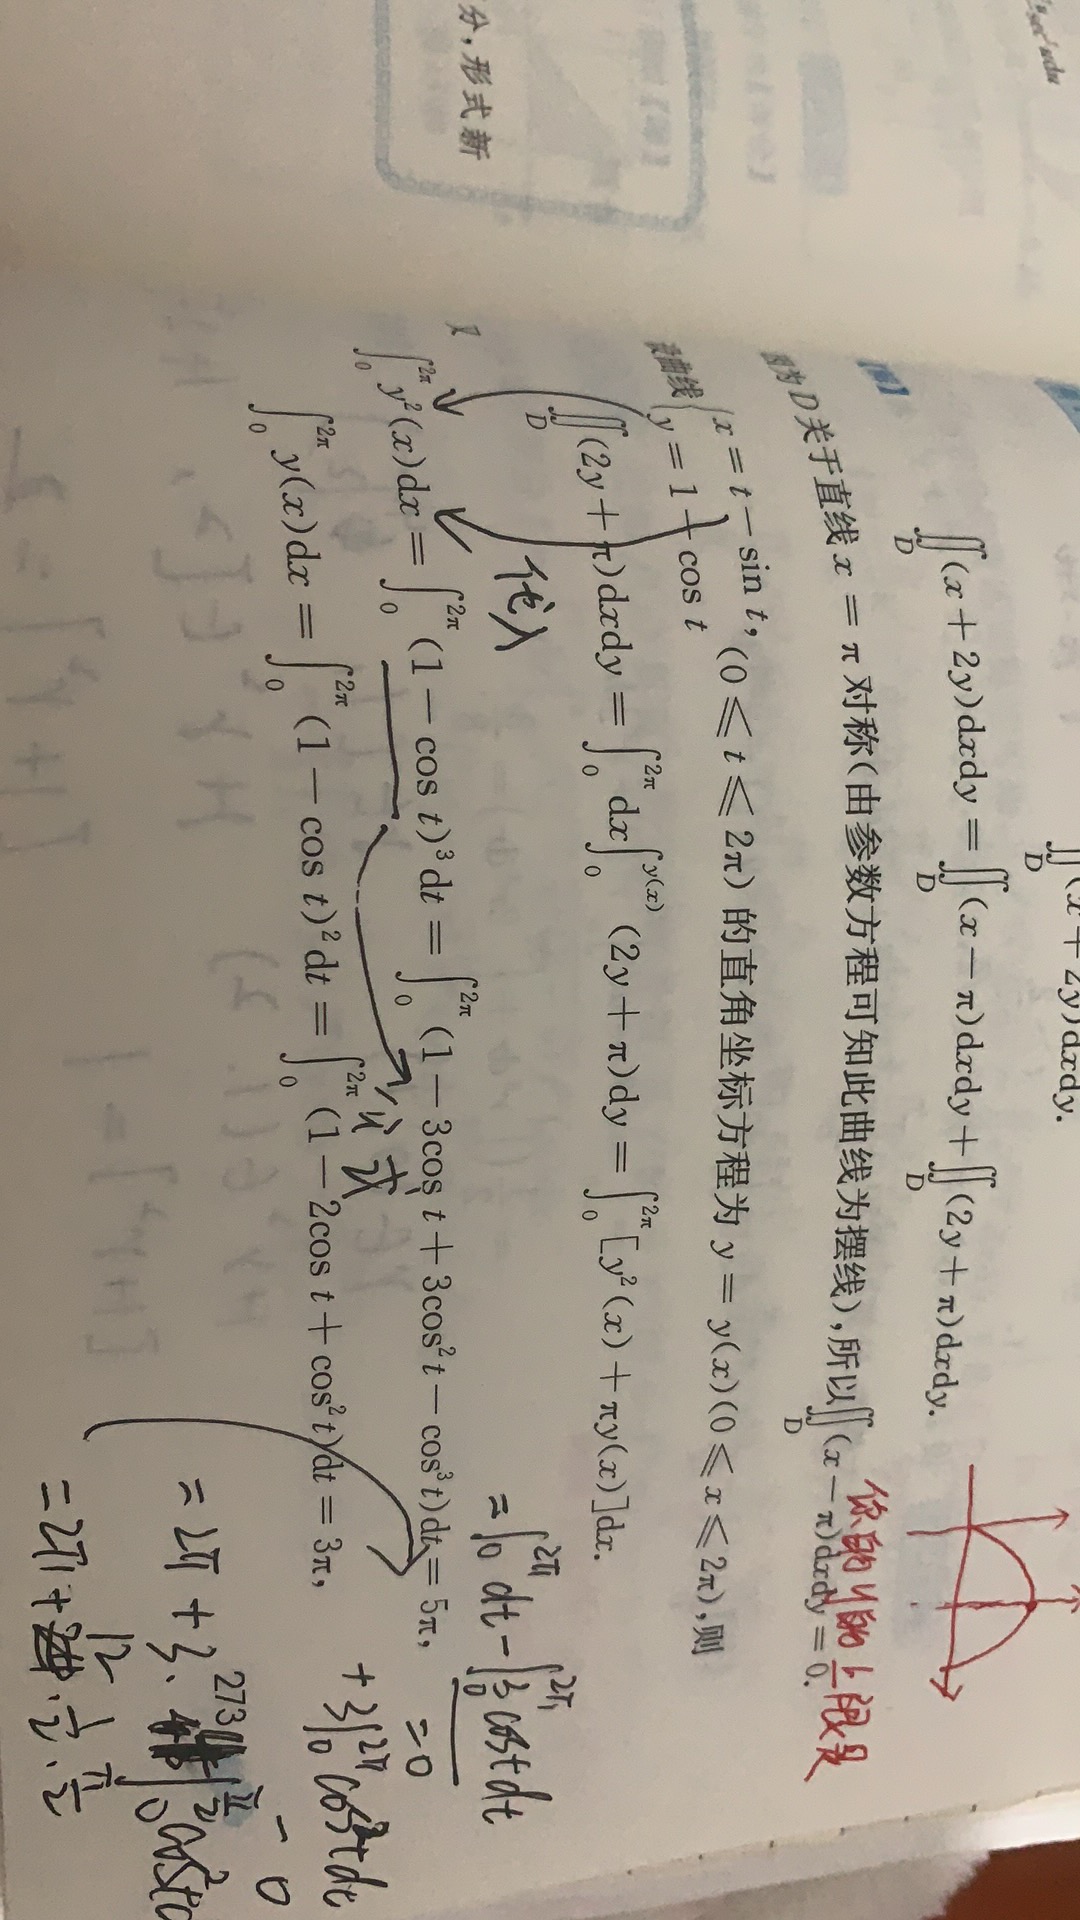 ∬_D (x + 2y)dxdy.
∬_D (x + 2y)dxdy = ∬_D (x − π)dxdy + ∬_D (2y + π)dxdy.
D关于直线 x = π 对称(由参数方程可知此曲线为摆线),所以∬_D (x − π)dxdy = 0.
曲线 { x = t − sin t, y = 1 − cos t (0 ⩽ t ⩽ 2π) 的直角坐标方程为 y = y(x)(0 ⩽ x ⩽ 2π),则
∬_D (2y + π)dxdy = ∫_0^{2π} dx ∫_0^{y(x)} (2y + π)dy = ∫_0^{2π} [y²(x) + πy(x)]dx.
代入
∫_0^{2π} y²(x)dx = ∫_0^{2π} (1 − cos t)³dt = ∫_0^{2π} (1 − 3cos t + 3cos²t − cos³t)dt = 5π,
公式
∫_0^{2π} y(x)dx = ∫_0^{2π} (1 − cos t)²dt = ∫_0^{2π} (1 − 2cos t + cos²t)dt = 3π,
= ∫_0^{2π} dt − ∫_0^{2π} 3 cost dt
= 0
+ 3∫_0^{2π} cos²t dt
− 0
273
= 2π + 3·
= 2π + 12 · 1/2 · π/2
分,形式新